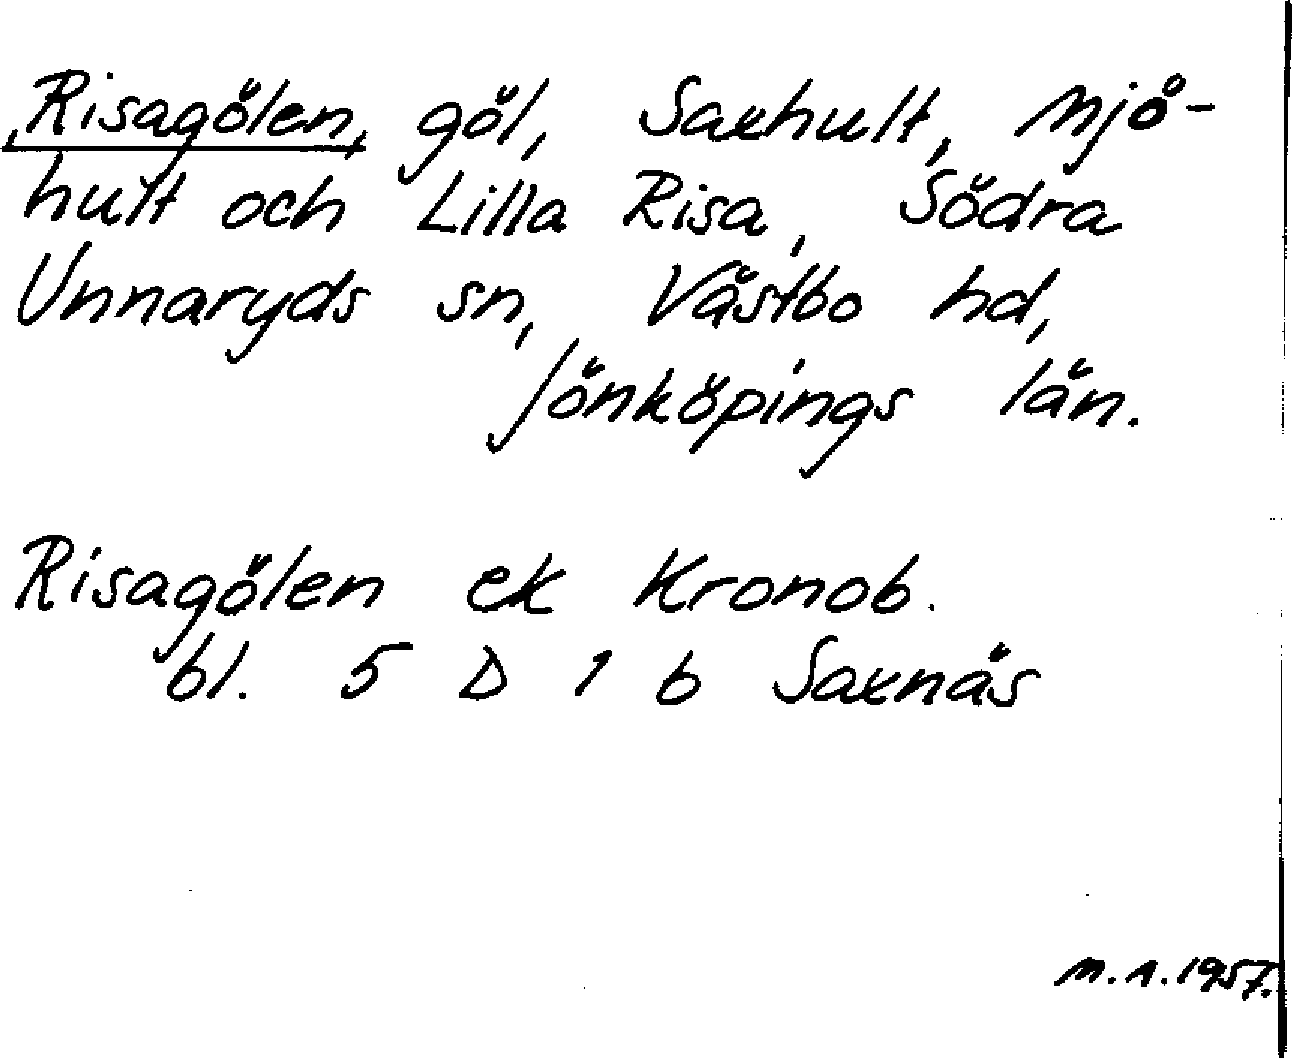 Risagölen, göl, Saxhult, Mjö-
hult och Lilla Risa, Södra
Unnaryds sn, Västbo hd,
Jönköpings län.
Risagölen ek Kronob.
bl. 5 D 1 b Saxnäs
M.A. 1957.